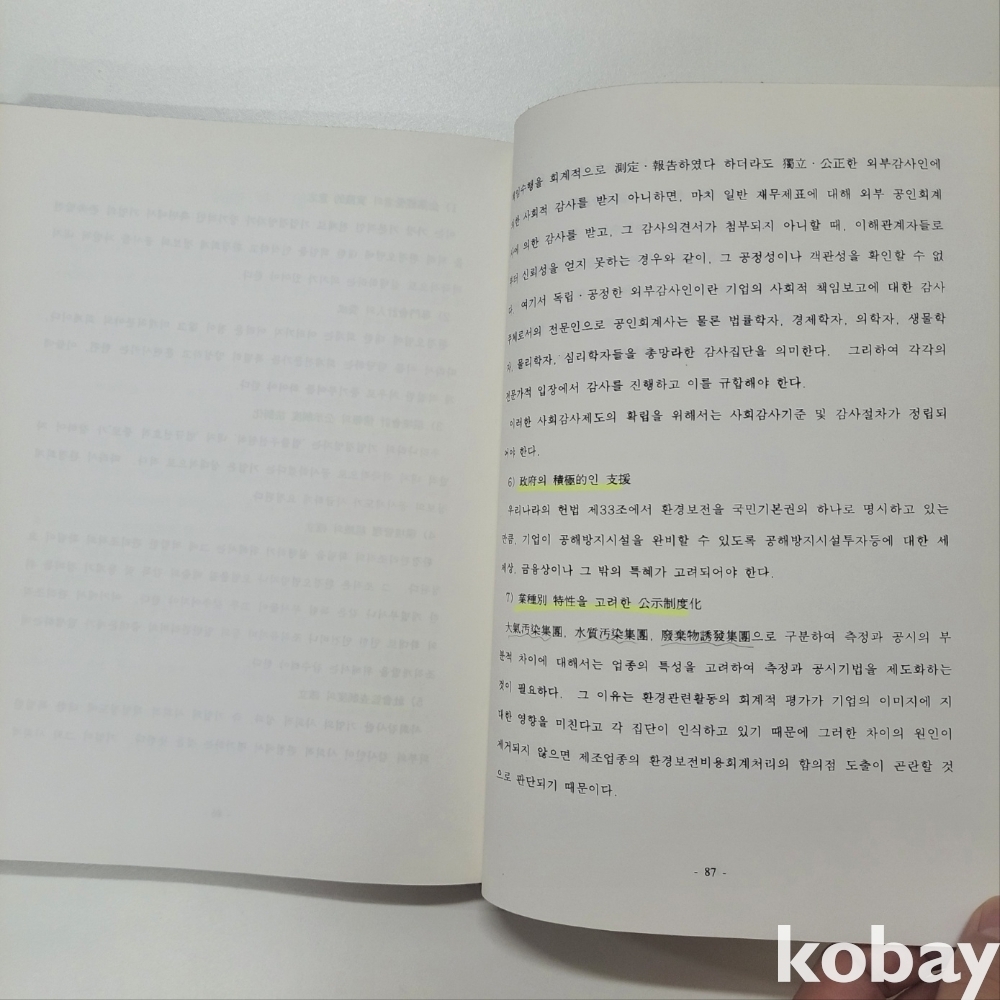 책임수행을 회계적으로 測定·報告하였다 하더라도 獨立·公正한 외부감사인에
의한 사회적 감사를 받지 아니하면, 마치 일반 재무제표에 대해 외부 공인회계
의한 감사를 받고, 그 감사의견서가 첨부되지 아니할 때, 이해관계자들로
부터 신뢰성을 얻지 못하는 경우와 같이, 그 공정성이나 객관성을 확인할 수 없
다. 여기서 독립·공정한 외부감사인이란 기업의 사회적 책임보고에 대한 감사
주체로서의 전문인으로 공인회계사는 물론 법률학자, 경제학자, 의학자, 생물학
자, 물리학자, 심리학자들을 총망라한 감사집단을 의미한다. 그리하여 각각의
전문가적 입장에서 감사를 진행하고 이를 규합해야 한다.
이러한 사회감사제도의 확립을 위해서는 사회감사기준 및 감사절차가 정립되
어야 한다.
6) 政府의 積極的인 支援
우리나라의 헌법 제33조에서 환경보전을 국민기본권의 하나로 명시하고 있는
만큼, 기업이 공해방지시설을 완비할 수 있도록 공해방지시설투자등에 대한 세
제상, 금융상이나 그 밖의 특혜가 고려되어야 한다.
7) 業種別 特性을 고려한 公示制度化
大氣汚染集團, 水質汚染集團, 廢棄物誘發集團으로 구분하여 측정과 공시의 부
분적 차이에 대해서는 업종의 특성을 고려하여 측정과 공시기법을 제도화하는
것이 필요하다. 그 이유는 환경관련활동의 회계적 평가가 기업의 이미지에 지
대한 영향을 미친다고 각 집단이 인식하고 있기 때문에 그러한 차이의 원인이
제거되지 않으면 제조업종의 환경보전비용회계처리의 합의점 도출이 곤란할 것
으로 판단되기 때문이다.
- 87 -
kobay